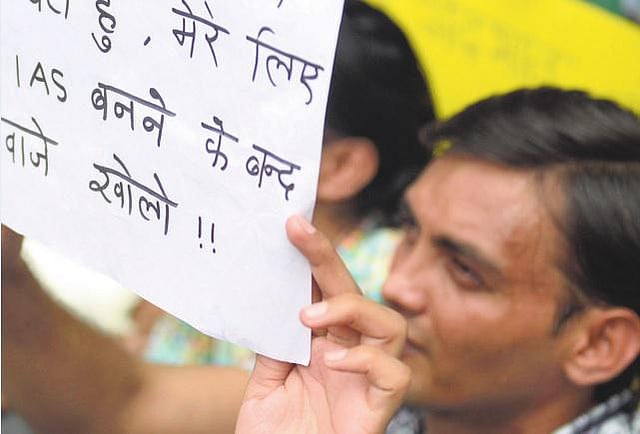 हूँ . मेरे लिए
IAS बनने के बन्द
वाजे खोलो !!